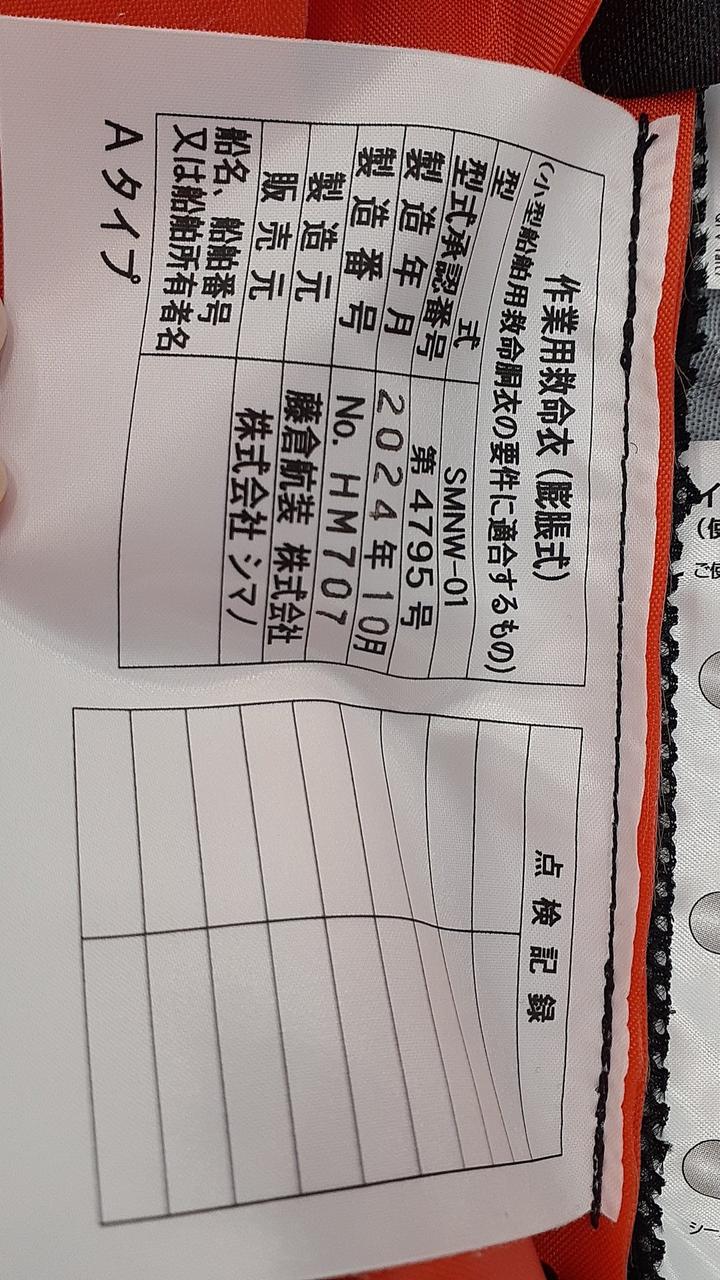 作業用救命衣（膨脹式）
（小型船舶用救命胴衣の要件に適合するもの）
型式 SMNW-01
型式承認番号 第4795号
製造年月 2024年10月
製造番号 No. HM707
製造元 藤倉航装 株式会社
販売元 株式会社 シマノ
船名、船舶番号
又は船舶所有者名
Aタイプ
点検記録
ご使
シー